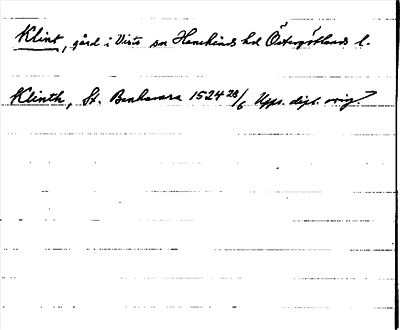 Klint, gård i Vists sn Hanekinds hd Östergötlands l.
Klinth, St. Benkavara 1524 28/6 Upps. dipl. orig.